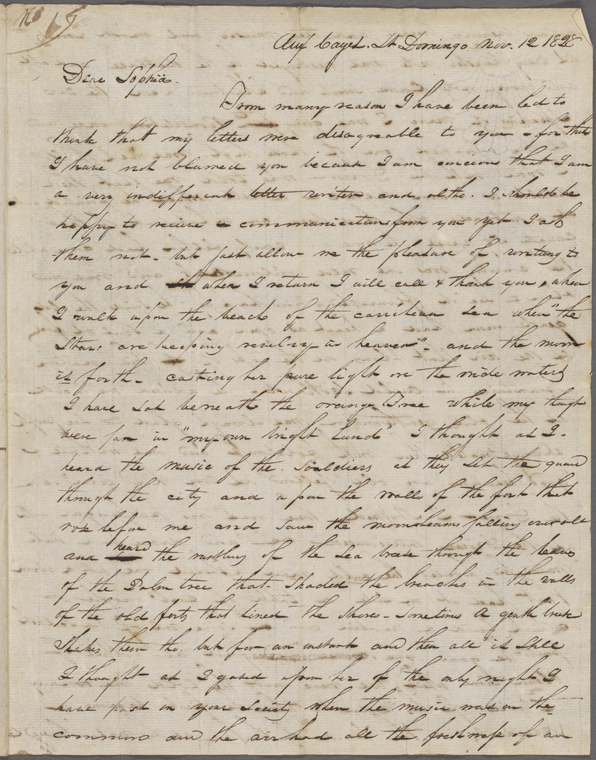 No 19
Aux Cayes. St Domingo Nov. 12 1828
Dear Sophia.
From many reason I have been led to
think that my letters were disagreable to you - for this
I have not blamed you becaus I am concious that I am
a very indifferent letter writer and altho. I should be
happy to recieve a communication from you yet I ask
them not - but just allow me the pleasure of writing to
you and when I return I will call & thank you & when
I walk upon the beach of the carribean Sea when "the
Stars are keeping revelry in heaven" - and the moon
is forth - casting her pure light on the wide waters
I have sat beneath the orange Tree while my thoughts
were far in "my own bright Land" I thought as I -
heard the music of the Souldiers as they set the guard
through the city and upon the walls of the fort that
rose before me and saw the moonbeams falling
and heard the rustling of the Sea breeze through the leaves
of the Palm tree that shaded the breaches in the walls
of the old forts that lined the Shores - Sometimes a gentle breeze
Shakes them tho. but for an instant and then all is Still
I thought as I gazed upon her of the only night I
have past in your Society when the music was on the
common and the air had all the freshness of an